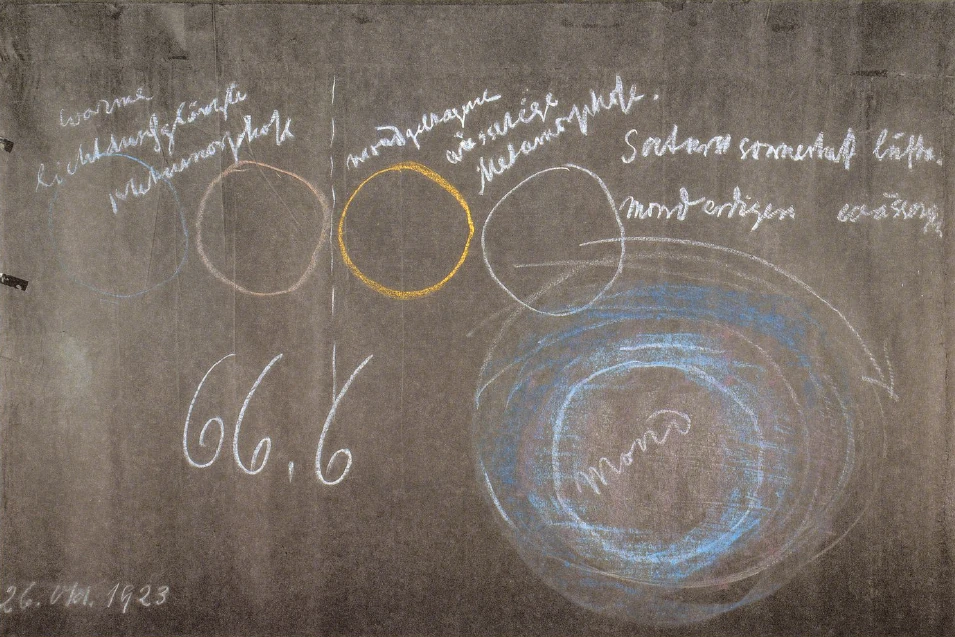 warme
lichtdurchglänzte
Metamorphose
mondgetragene
wässerige
Metamorphose.
Saturn sonnenhaft
mond erdigen wässerig
66.6
Mond
26. Okt. 1923